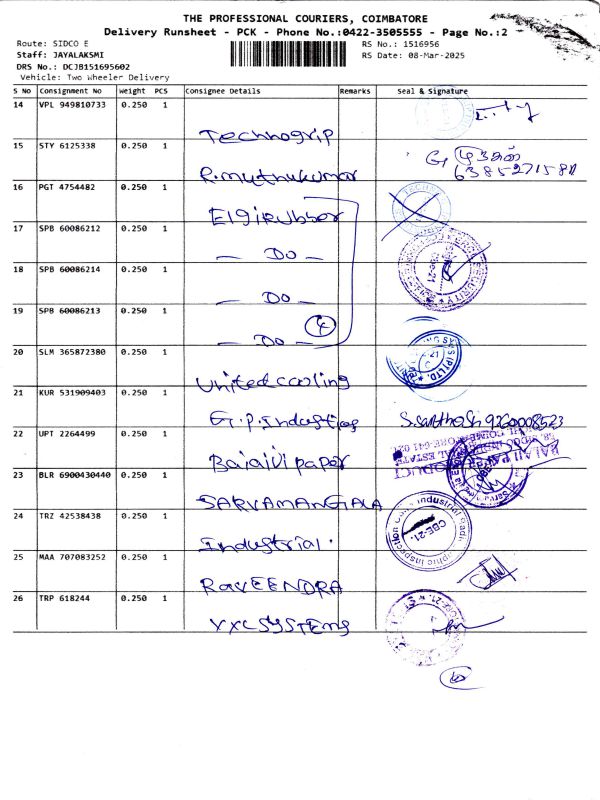 THE PROFESSIONAL COURIERS, COIMBATORE
Delivery Runsheet - PCK - Phone No.:0422-3505555 - Page No.:2
Route: SIDCO E
RS No.: 1516956
Staff: JAYALAKSMI
RS Date: 08-Mar-2025
DRS No.: DCJB151695602
Vehicle: Two Wheeler Delivery
S No Consignment No Weight PCS Consignee Details Remarks Seal & Signature
14 VPL 949810733 0.250 1
Technogrip
15 STY 6125338 0.250 1
R.muthukumar
16 PGT 4754482 0.250 1
Elgi Rubber
17 SPB 60086212 0.250 1
— Do —
18 SPB 60086214 0.250 1
— Do —
19 SPB 60086213 0.250 1
— Do — 4
20 SLM 365872380 0.250 1
United cooling
21 KUR 531909403 0.250 1
G.P. Industries S.Santhosh 9360008523
22 UPT 2264499 0.250 1
Balaji paper
23 BLR 6900430440 0.250 1
SARVAMANGALA
24 TRZ 42538438 0.250 1
Industrial.
25 MAA 707083252 0.250 1
RAVEENDRA
26 TRP 618244 0.250 1